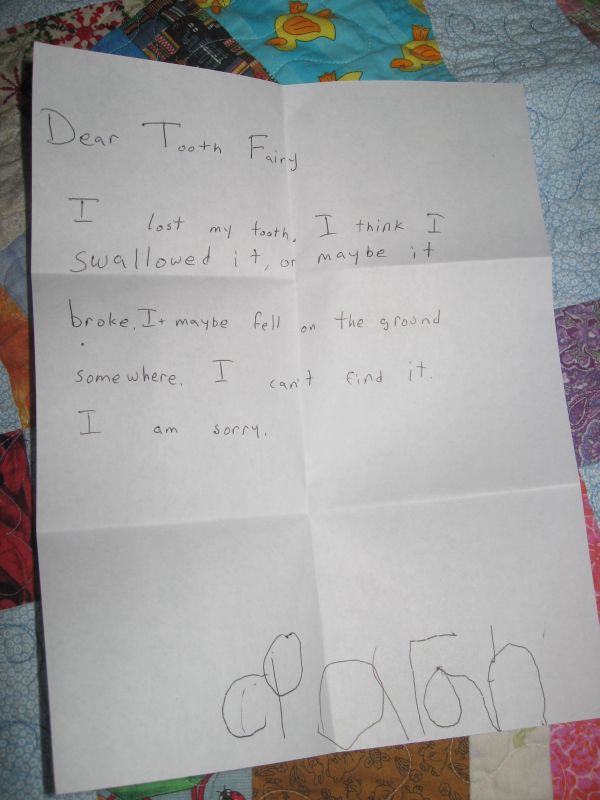 Dear Tooth Fairy
I lost my tooth. I think I
swallowed it, or maybe it
broke. It maybe fell on the ground
somewhere. I can't find it.
I am sorry.